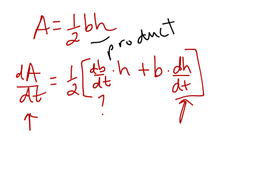 A = 1/2 bh
product
dA/dt = 1/2 [db/dt · h + b · dh/dt]
?